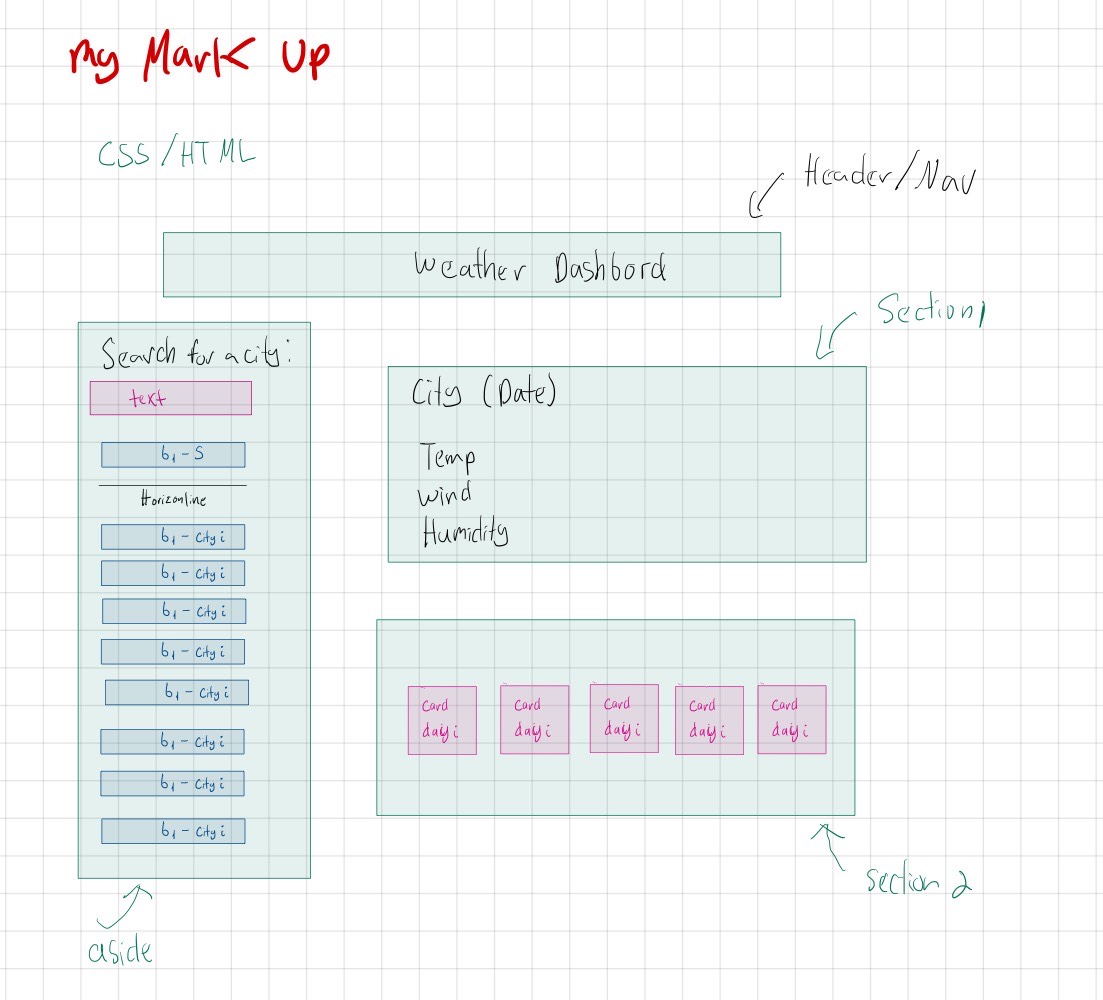 my Mark Up
CSS/HTML
Header/Nav
Weather Dashbord
Section 1
Search for a city:
text
b1-S
Horizonline
b1-City i
b1-City i
b1-City i
b1-City i
b1-City i
b1-City i
b1-City i
b1-City i
aside
City (Date)
Temp
Wind
Humidity
Card
daiy i
Card
daiy i
Card
daiy i
Card
daiy i
Card
daiy i
section 2